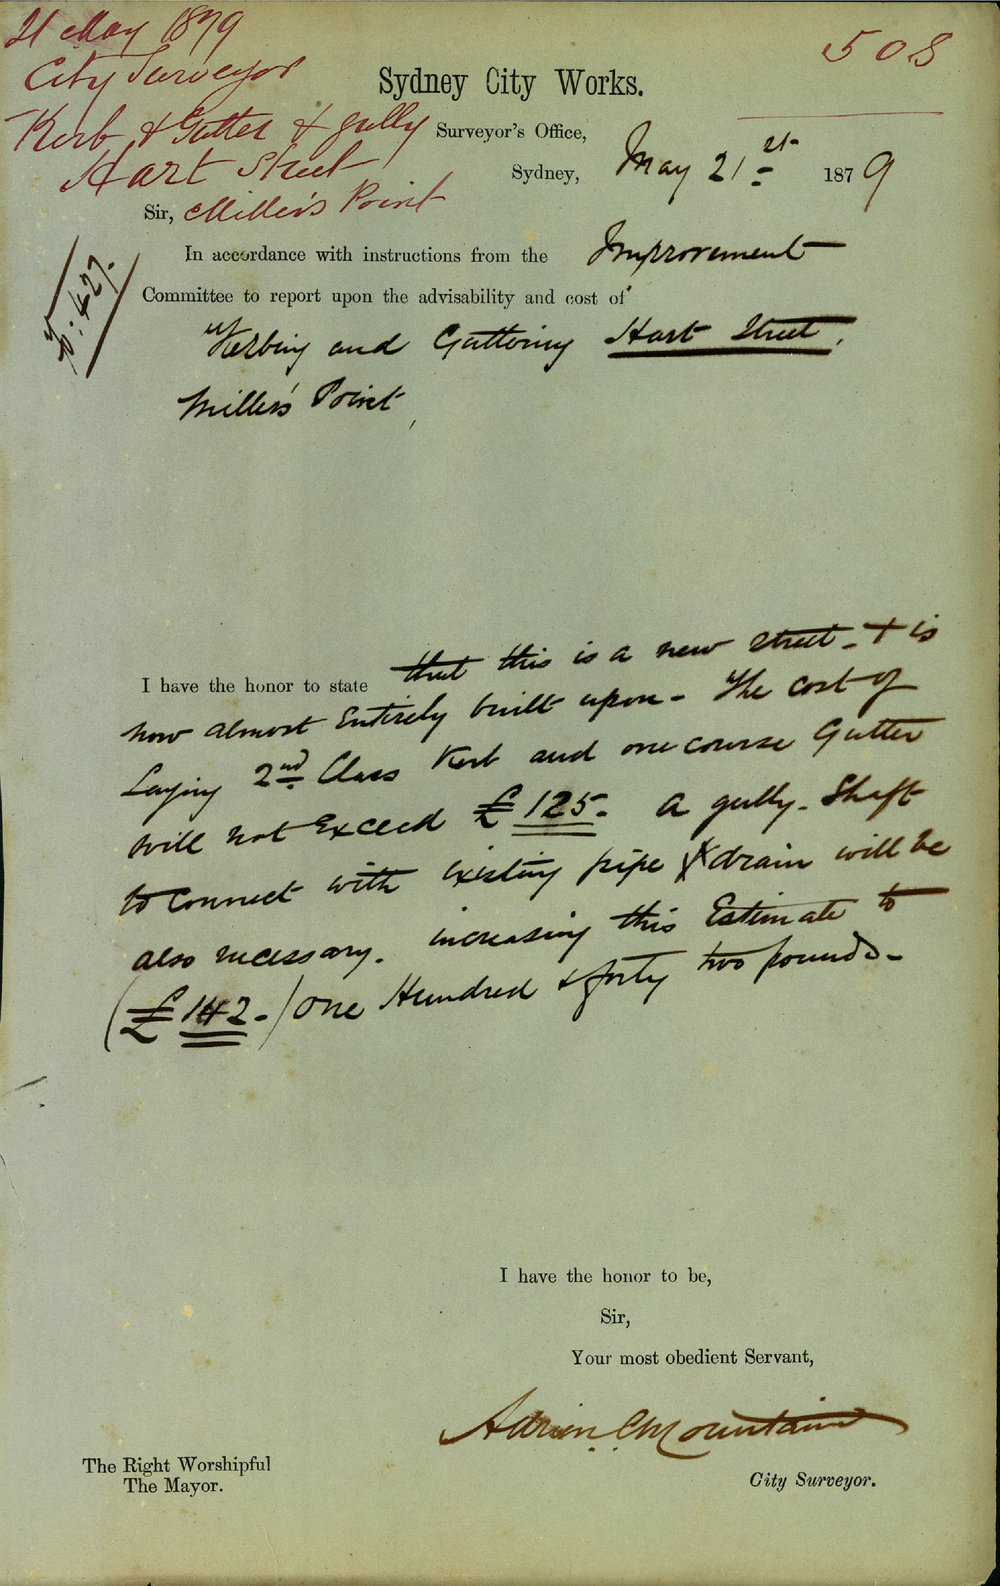 21 May 1879
City Surveyor
Kerb & Gutter & gully
Hart Street
Miller's Point
508
Sydney City Works.
Surveyor's Office,
Sydney, May 21st 1879
Sir,
427.
In accordance with instructions from the Improvement
Committee to report upon the advisability and cost of
Kerbing and Guttering Hart Street,
Miller's Point,
I have the honor to state that this is a new street - & is
now almost Entirely built upon - The cost of
Laying 2nd Class Kerb and one course Gutter
will not Exceed £125 - A gully-Shaft
to connect with existing pipe drain will be
also necessary. increasing this Estimate to
(£142-) One Hundred & forty two pounds -
I have the honor to be,
Sir,
Your most obedient Servant,
Adrien C Mountain
City Surveyor.
The Right Worshipful
The Mayor.